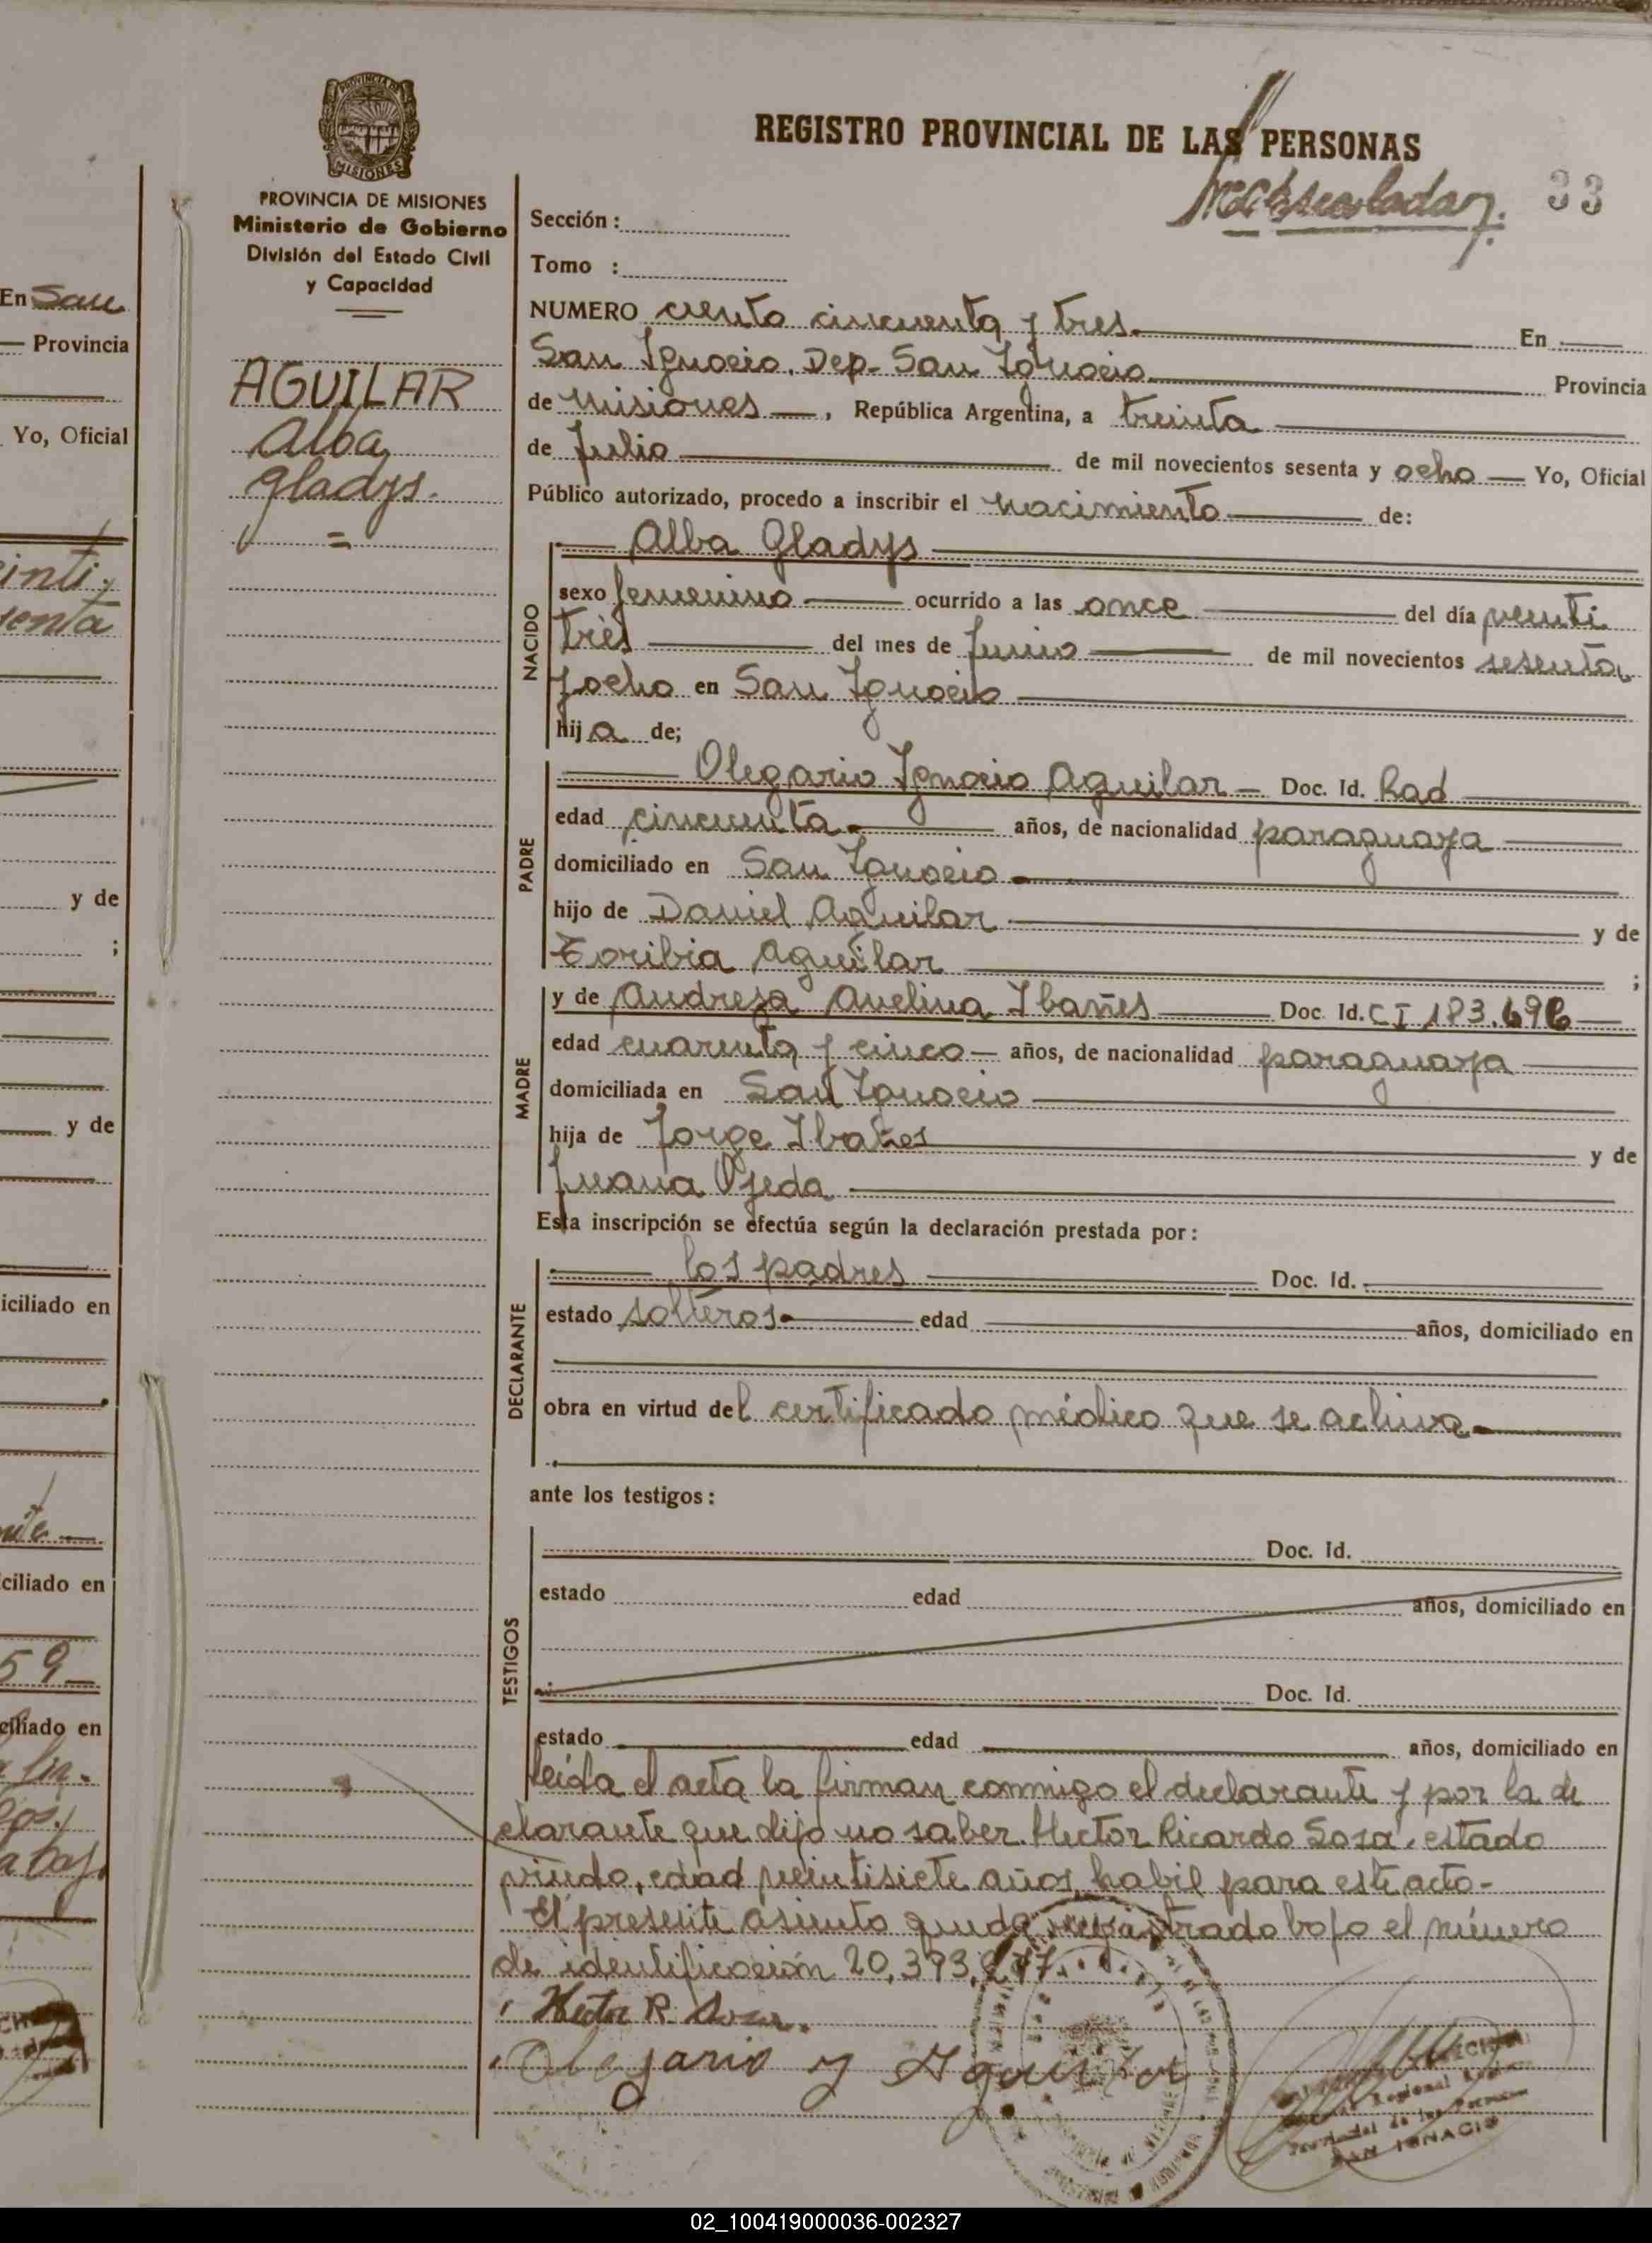 REGISTRO PROVINCIAL DE LAS PERSONAS
33
PROVINCIA DE
MISIONES
PROVINCIA DE MISIONES
Ministerio de Gobierno
División del Estado Civil
y Capacidad
AGUILAR
Alba
Gladys.
Sección :
Tomo :
NUMERO ciento cincuenta y tres. En
San Ignacio. Dep. San Ignacio Provincia
de Misiones, República Argentina, a treinta
de Julio de mil novecientos sesenta y ocho Yo, Oficial
Público autorizado, procedo a inscribir el nacimiento de:
NACIDO
Alba Gladys
sexo femenino ocurrido a las once del día veinti
trés del mes de Junio de mil novecientos sesenta
y ocho en San Ignacio
hija de;
PADRE
Olegario Ignacio Aguilar Doc. Id.
edad cincuenta años, de nacionalidad paraguaya
domiciliado en San Ignacio
hijo de Daniel Aguilar y de
Toribia Aguilar ;
MADRE
y de Andresa Avelina Ibañes Doc. Id. CI
edad cuarenta y cinco años, de nacionalidad paraguaya
domiciliada en San Ignacio
hija de Jorge Ibañes y de
Juana Ojeda
Esta inscripción se efectúa según la declaración prestada por:
DECLARANTE
los padres Doc. Id.
estado solteros edad años, domiciliado en
obra en virtud del certificado médico que se achiva
ante los testigos:
TESTIGOS
Doc. Id.
estado edad años, domiciliado en
Doc. Id.
estado edad años, domiciliado en
Leída el acta la firman conmigo el declarante y por la de
clarante que dijo no saber Hector Ricardo Sosa, estado
viudo, edad veintisiete años, habil para este acto-
El presente asiento queda registrado bajo el número
de identificación
Hector R. Sosa
Olegario y Aguilar
SAN IGNACIO
En San
Provincia
Yo, Oficial
inti
senta
y de
;
y de
iciliado en
ciliado en
59
ciliado en
02_100419000036-002327